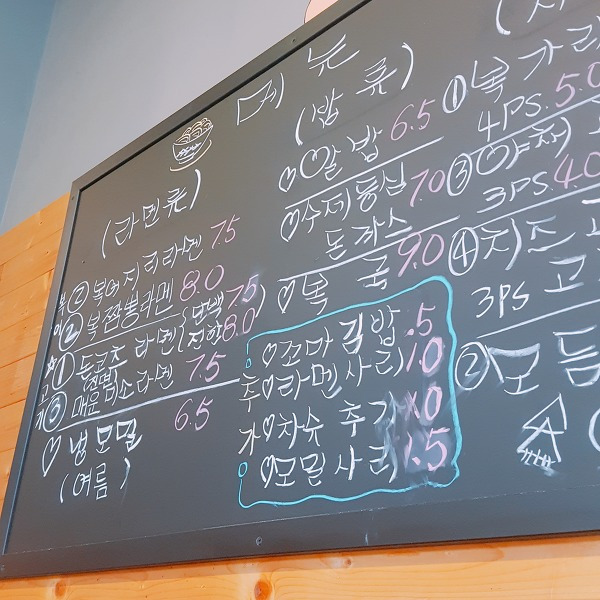 메뉴
(라멘류)
② 복어지리라멘 7.5
② 복짬뽕라멘 8.0
① 돈코츠라멘 (담백 7.5
진한 8.0)
③ 매운미소라멘 7.5
♡ 냉모밀 6.5
(여름)
(밥류)
♡ 알밥 6.5
♡ 수제등심 7.0
돈까스
♡ 복국 9.0
추가
♡ 꼬마김밥 .5
♡ 라멘사리 1.0
♡ 차슈추가
♡ 모밀사리 1.5
① 복가라
4PS. 5.0
③ 야채
3PS. 4.0
④ 치즈
3PS 고
② 모듬